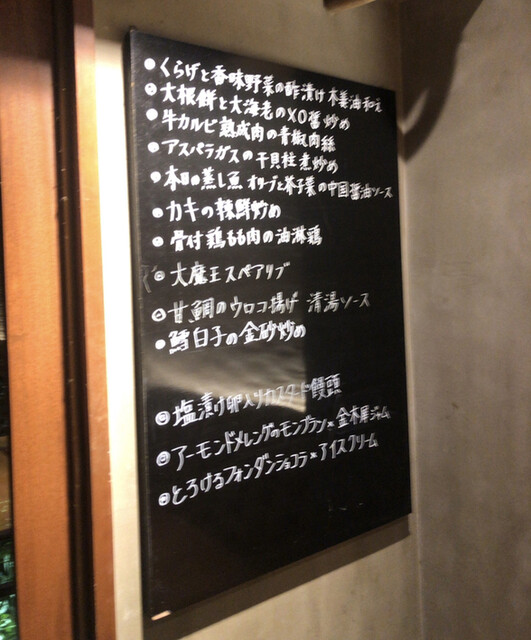 ●くらげと香味野菜の酢漬け 木姜油和え
●大根餅と大海老のXO醤炒め
●牛カルビ熟成肉の青椒肉絲
●アスパラガスの干貝柱煮炒め
●本日の蒸し魚 オリーブと芥子菜の中国醤油ソース
●カキの辣鮮炒め
●骨付鶏もも肉の油淋鶏
◎大魔王スペアリブ
◎甘鯛のウロコ揚げ 清湯ソース
●鱈白子の金砂炒め
◎塩漬け卵入りカスタード饅頭
◎アーモンドメレンゲのモンブラン×金木犀ジャム
◎とろけるフォンダンショコラ×アイスクリーム